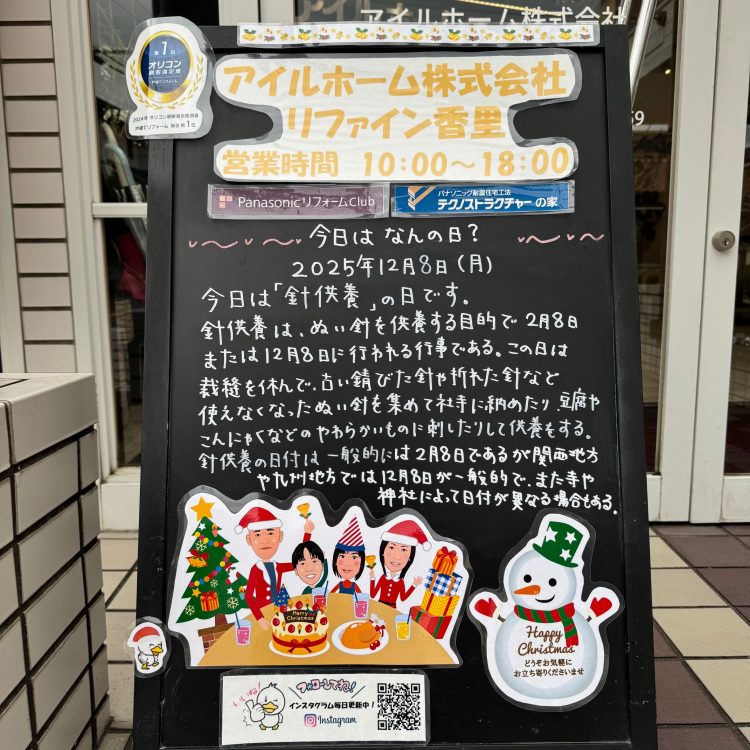 アイルホーム株式会社
第1位
オリコン
顧客満足度
戸建てリフォーム
2024年 オリコン顧客満足度調査
戸建てリフォーム 総合 第1位
アイルホーム株式会社
リファイン香里
営業時間 10:00〜18:00
PanasonicリフォームClub
パナソニック耐震住宅工法
テクノストラクチャーの家
今日は なんの日?
2025年12月8日(月)
今日は「針供養」の日です。
針供養は、ぬい針を供養する目的で2月8日
または12月8日に行われる行事である。この日は
裁縫を休んで、古い錆びた針や折れた針など
使えなくなったぬい針を集めて社寺に納めたり、豆腐や
こんにゃくなどのやわらかいものに刺したりして供養をする。
針供養の日付は一般的には2月8日であるが関西地方
や九州地方では12月8日が一般的で、また寺や
神社によって日付が異なる場合もある。
Merry
Christmas
Happy
Christmas
どうぞお気軽に
お立ち寄りくださいませ
いいね!
フォローしてね!
インスタグラム毎日更新中!
Instagram